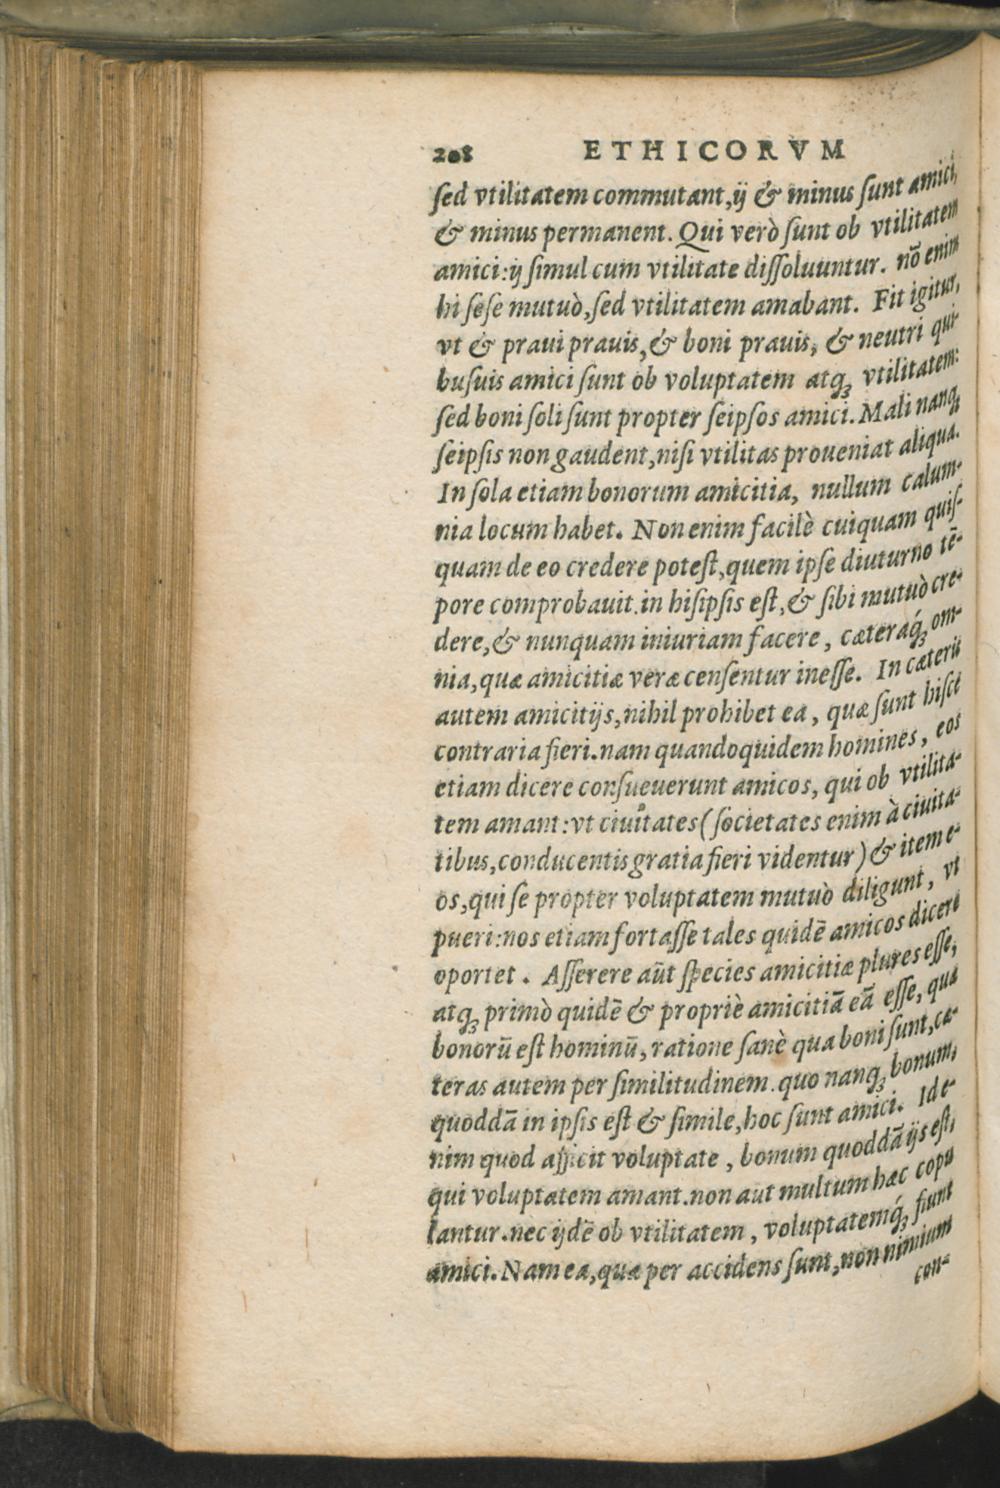 208 ETHICORVM
sed vtilitatem commutant,ij & minus sunt amici,
& minus permanent. Qui verò sunt ob vtilitatem
amici:ij simul cum vtilitate dissoluuntur. nō enim
hi sese mutuò,sed vtilitatem amabant. Fit igitur,
vt & praui prauis,& boni prauis, & neutri qui-
busuis amici sunt ob voluptatem atq; vtilitatem:
sed boni soli sunt propter seipsos amici. Mali nanq;
seipsis non gaudent,nisi vtilitas proueniat aliqua.
In sola etiam bonorum amicitia, nullum calum-
nia locum habet. Non enim facilè cuiquam quis-
quam de eo credere potest,quem ipse diuturno tē-
pore comprobauit.in hisipsis est,& sibi mutuò cre-
dere,& nunquam iniuriam facere, cæteraq́; om-
nia,quæ amicitiæ veræ censentur inesse. In cæteris
autem amicitijs,nihil prohibet ea, quæ sunt hisce
contraria fieri.nam quandoquidem homines, eos
etiam dicere consueuerunt amicos, qui ob vtilita-
tem amant:vt ciuitates(societates enim à ciuita-
tibus,conducentis gratia fieri videntur)& item e-
os,qui se propter voluptatem mutuò diligunt, vt
pueri:nos etiam fortasse tales quidē amicos dicere
oportet. Asserere aūt species amicitiæ plures esse,
atq; primò quidē & propriè amicitiā eā esse, quæ
bonorū est hominū, ratione sanè qua boni sunt,cæ-
teras autem per similitudinem.quo nanq; bonum,
quoddā in ipsis est & simile,hoc sunt amici. Id e-
nim quod afficit voluptate, bonum quoddā ijs est,
qui voluptatem amant.non aut multum hæc copu
lantur.nec ijdē ob vtilitatem, voluptatemq́; fiunt
amici. Nam ea,quæ per accidens sunt,non nimium
con-